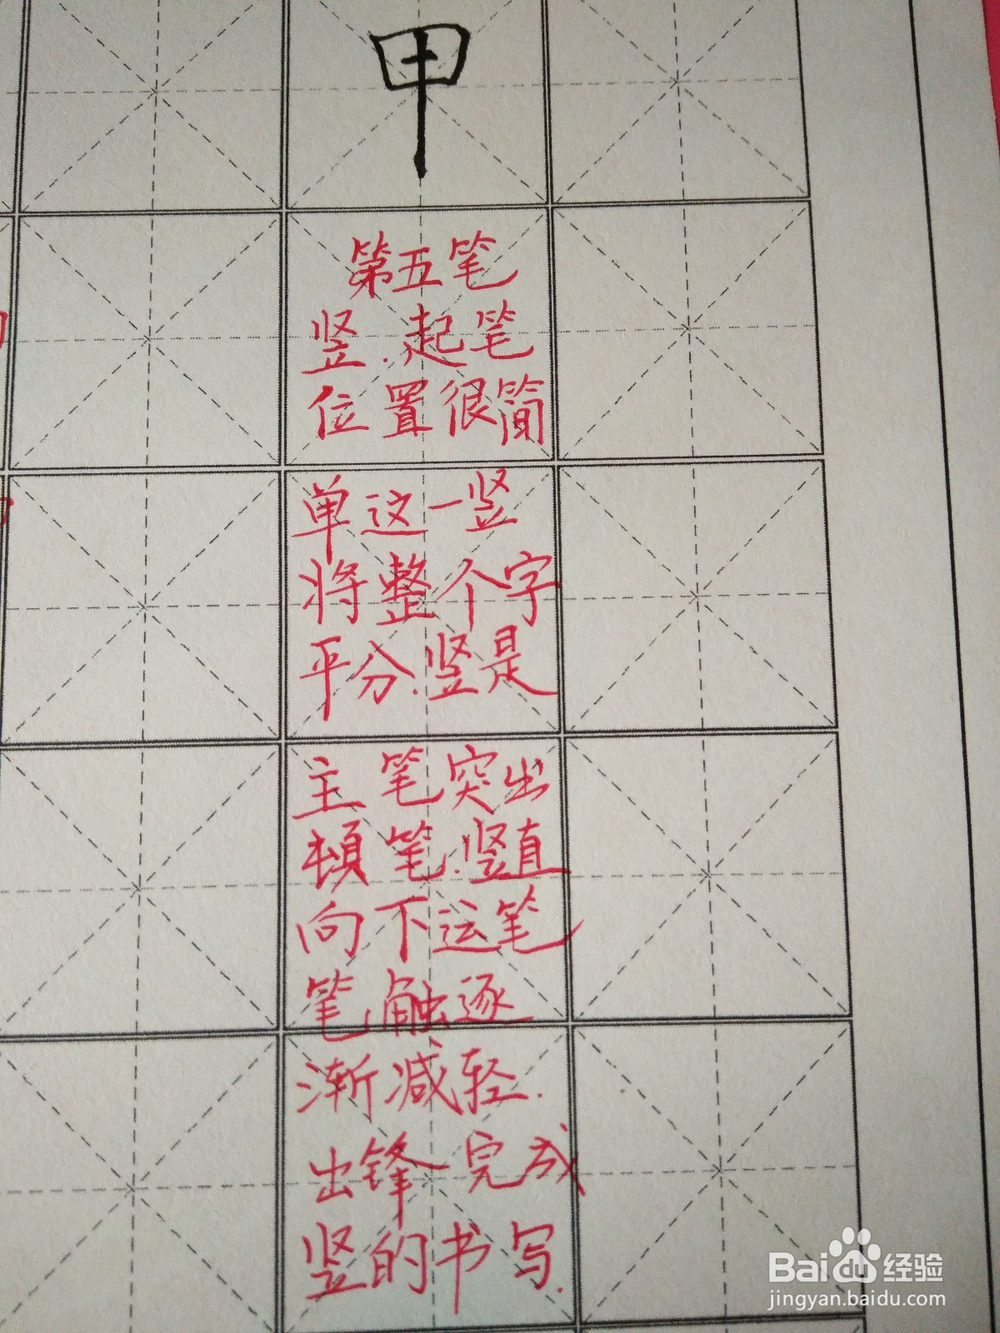 甲
第五笔
竖.起笔
位置很简
单这一竖
将整个字
平分.竖是
主笔突出
顿笔.竖直
向下运笔
笔触逐
渐减轻.
出锋完成
竖的书写.
Baidu经验
jingyan.baidu.com